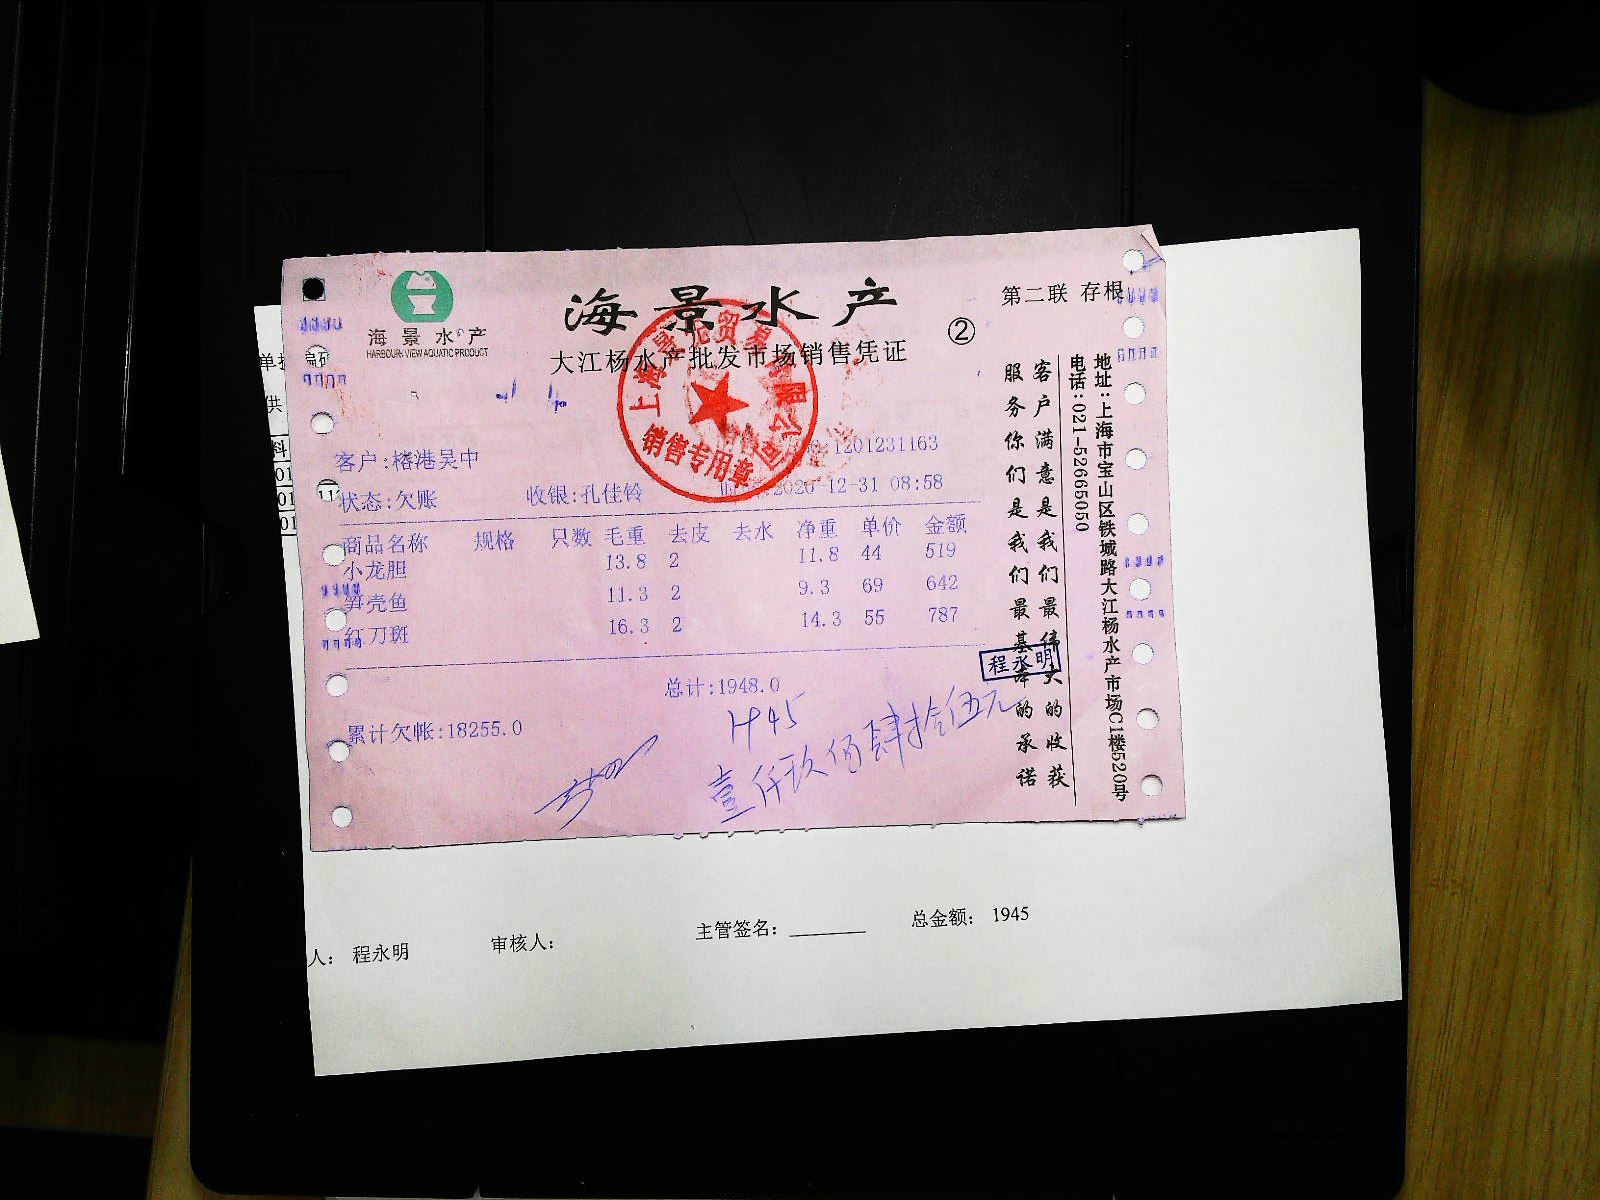 海景水产
HARBOUR VIEW AQUATIC PRODUCT
海景水产
大江杨水产批发市场销售凭证
②
第二联 存根
销售专用章
客户:榕港吴中
1201231163
状态:欠账 收银:孔佳铃 2020-12-31 08:58
商品名称 规格 只数 毛重 去皮 去水 净重 单价 金额
小龙胆 13.8 2 11.8 44 519
笋壳鱼 11.3 2 9.3 69 642
红刀斑 16.3 2 14.3 55 787
总计:1948.0
累计欠帐:18255.0
1945
壹仟玖佰肆拾伍元
程永明
客户满意是我们最伟大的收获
服务你们是我们最基本的承诺
地址:上海市宝山区铁城路大江杨水产市场C1楼520号
电话:021-52665050
人: 程永明 审核人: 主管签名: 总金额: 1945